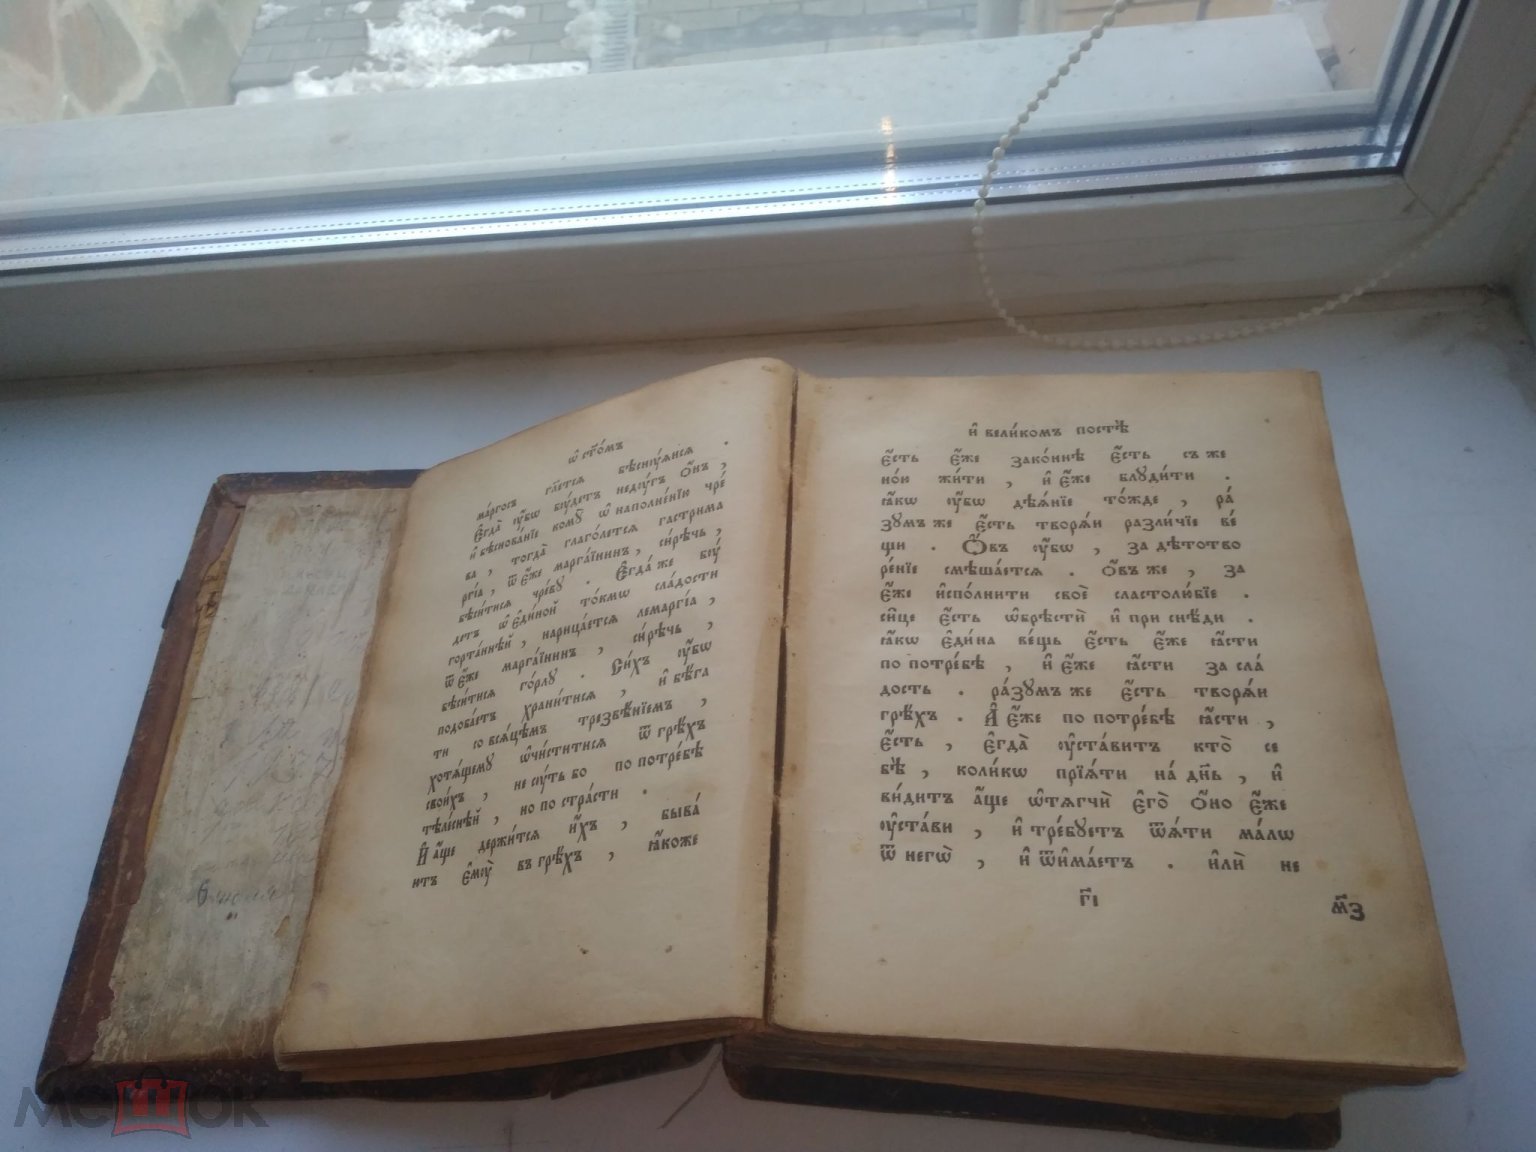 ѡ҆ ст҃о́мъ
ма́ргосъ гл҃ется бѣснꙋ́яися .
Є҆гда̀ ᲂу҆́бѡ бꙋ́детъ недꙋ́гъ ѻ҆́нъ ,
и҆ бѣснова́нїе комꙋ̀ ѡ҆ наполне́нїю чре́
ва , тогда̀ глаго́лется гастрима
ргі́а , ѿ є҆́же маргаі́нинъ , си́рѣчь ,
бѣси́тися чре́вꙋ . Є҆гда́ же бꙋ́
детъ ѡ҆ є҆ди́ной то́кмѡ сла́дости
горта́ннѣй , нарица́ется лемаргі́а ,
ѿ є҆́же маргаі́нинъ , си́рѣчь ,
бѣси́тися го́рлꙋ . Си́хъ ᲂу҆́бѡ
подоба́етъ храни́тися , и҆ бѣ́га
ти со вся́цѣмъ трезвѣ́нїемъ ,
хотя́щемꙋ ѡ҆чи́ститися ѿ грѣ́хъ
свои́хъ , не сꙋ́ть бо по потре́бѣ
тѣле́снѣй , но по стра́сти .
И҆ а҆́ще держи́тся и҆́хъ , быва́
итъ є҆мꙋ̀ въ грѣ́хъ , ꙗ҆́коже
и҆ вели́комъ постѣ̀
є҆́сть є҆́же зако́ннѣ є҆́сть съ же
но́ю жи́ти , и҆ є҆́же блꙋди́ти .
ꙗ҆́кѡ ᲂу҆́бѡ дѣѧ́нїе то́жде , ра́
зꙋмъ же є҆́сть творя́и разли́чїе ве́
щи . Ѻ҆́въ ᲂу҆́бѡ , за дѣтотво
ре́нїе смѣша́ется . ѻ҆́въ же , за
є҆́же и҆спо́лнити своѐ сластолю́бїе .
си́це є҆́сть ѡ҆брѣстѝ и҆ при снѣ́ди .
ꙗ҆́кѡ є҆ди́на ве́щь є҆́сть є҆́же ꙗ҆́сти
по потре́бѣ , и҆ є҆́же ꙗ҆́сти за сла́
дость . ра́зꙋмъ же є҆́сть творя́и
грѣ́хъ . А҆ є҆́же по потре́бѣ ꙗ҆́сти ,
є҆́сть , є҆гда̀ ᲂу҆ста́витъ кто̀ се
бѣ̀ , коли́кѡ прїя́ти на́ дн҃ь , и҆
ви́дитъ а҆́ще ѡ҆тягчѝ є҆го̀ ѻ҆́но є҆́же
ᲂу҆ста́ви , и҆ тре́бꙋетъ ѿя́ти ма́лѡ
ѿ негѡ̀ , и҆ ѿи́маетъ . и҆лѝ не
г҃і
м҃з
6 июля
мешок